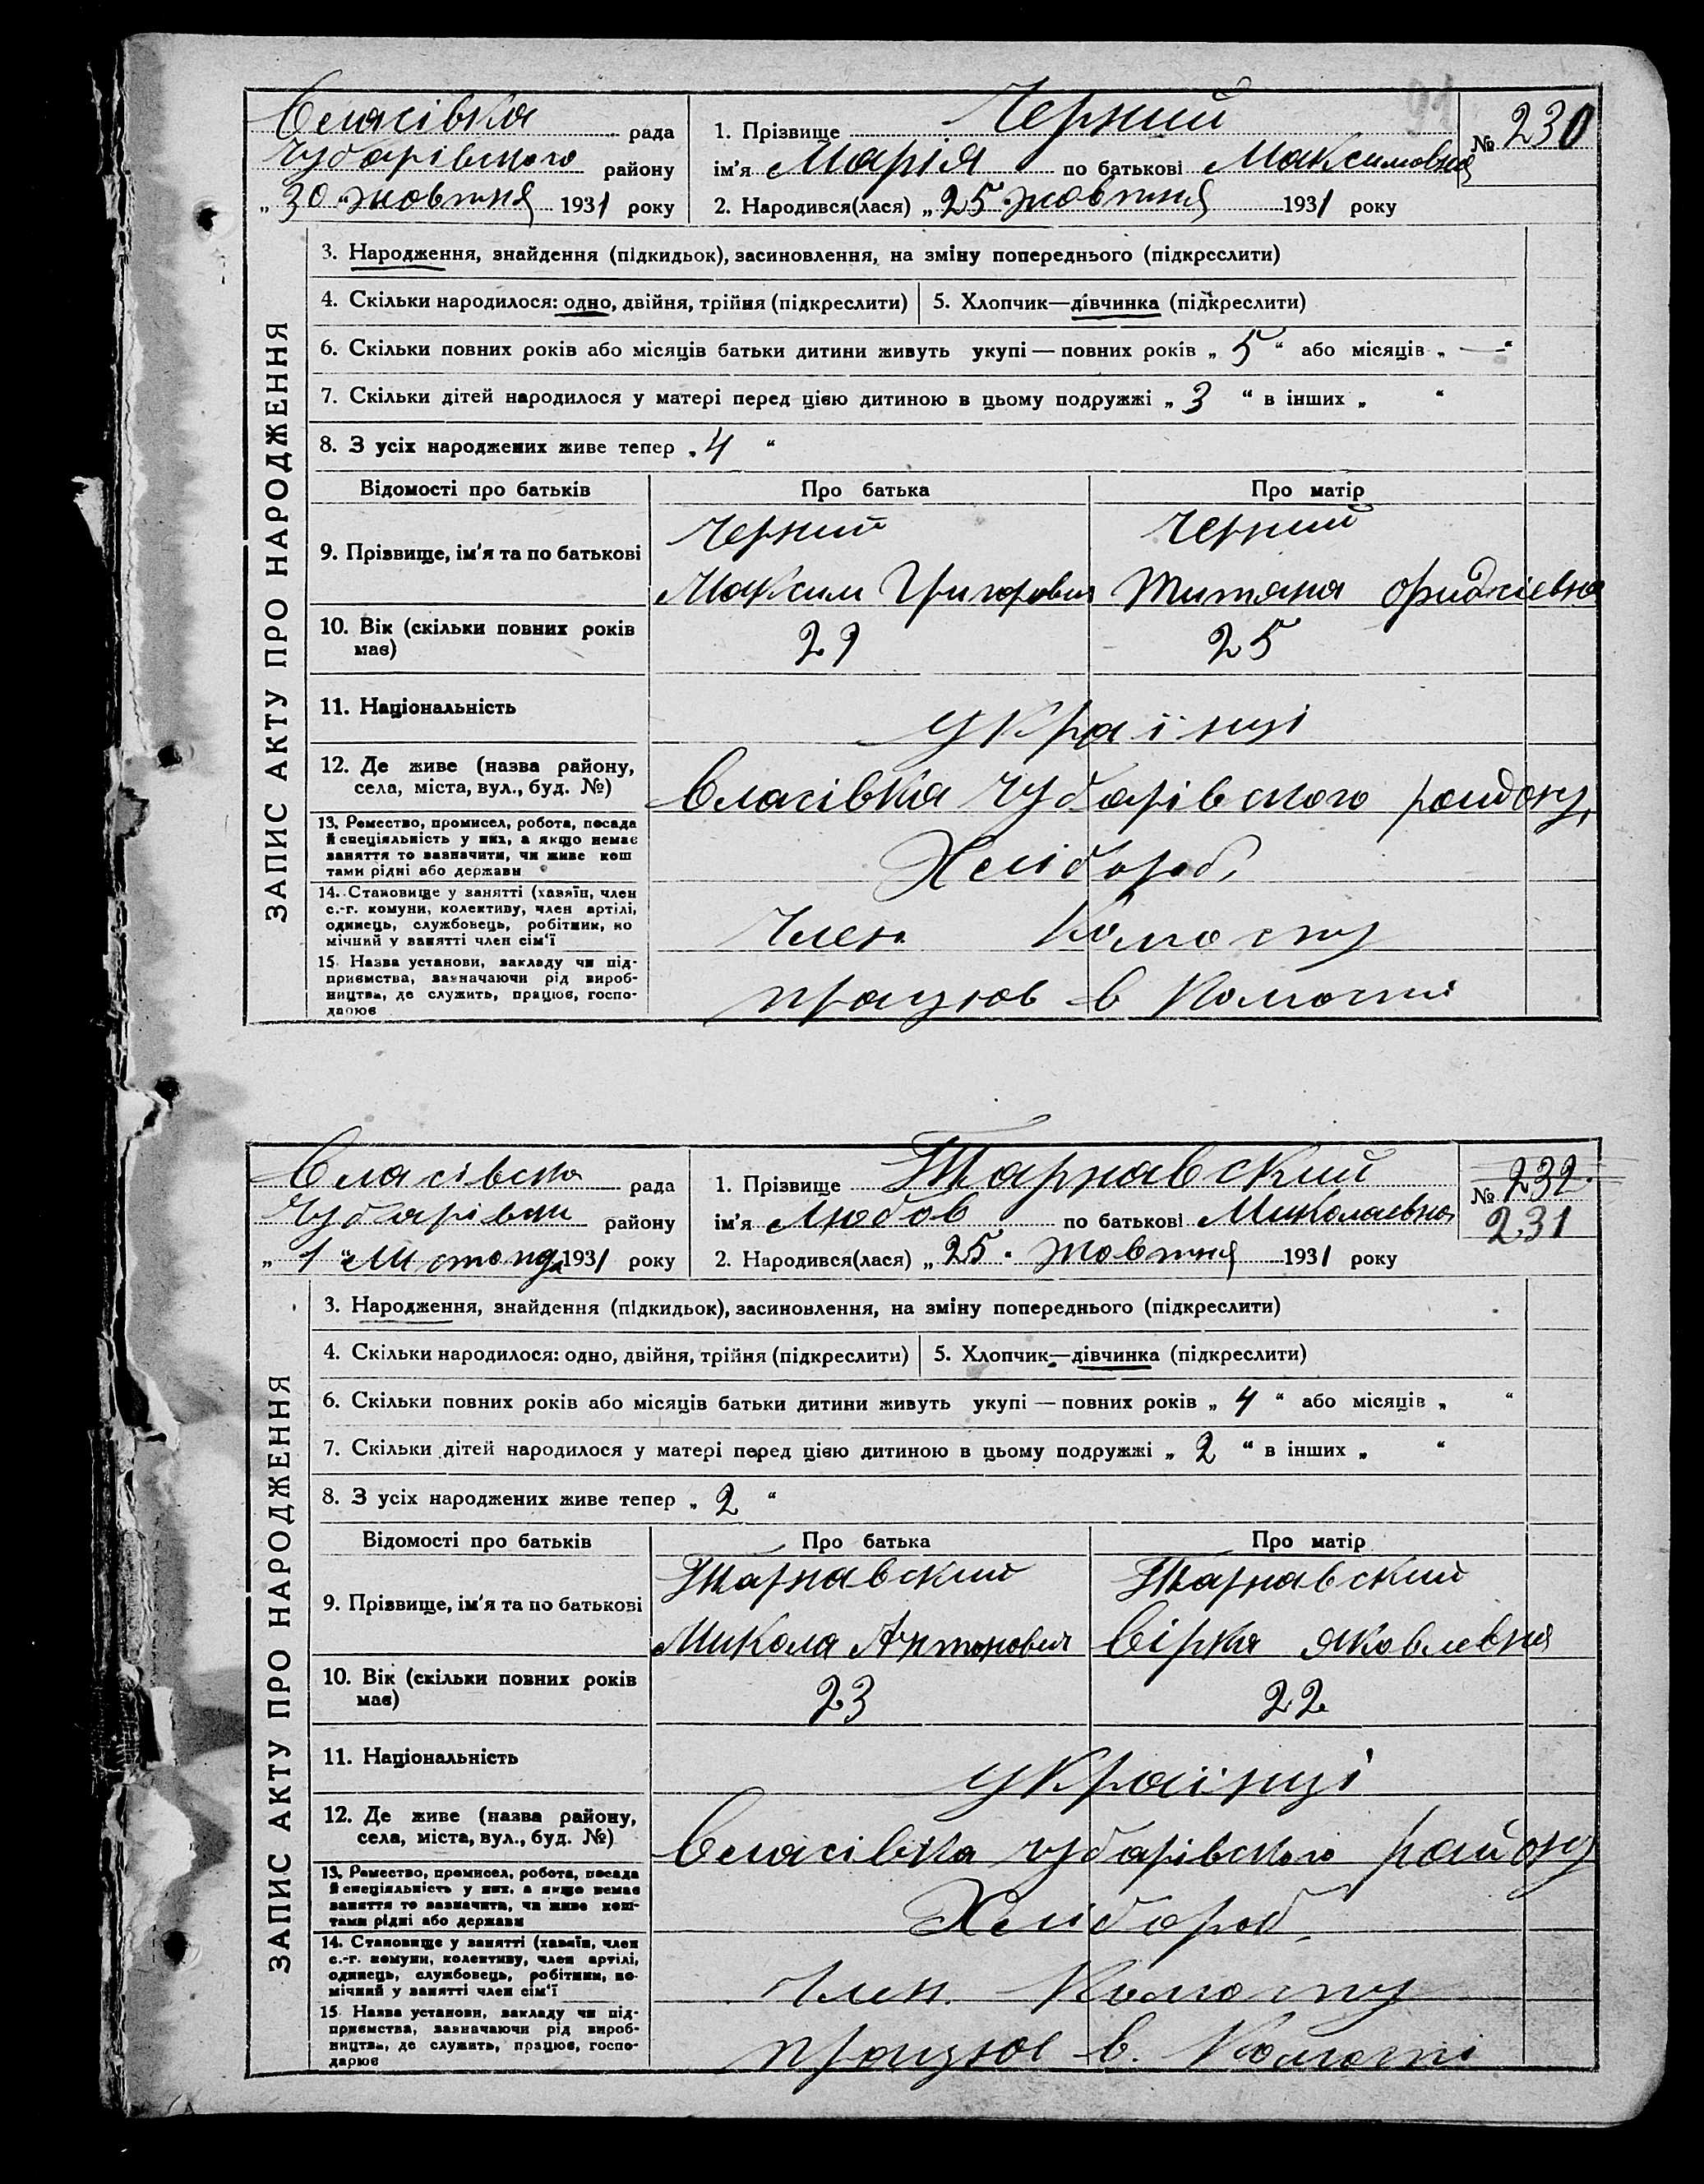 91
Власівка рада
Чубарівського району
„30“ жовтня 1931 року
1. Прізвище Черний
ім’я Марія по батькові Максимовна
2. Народився(лася) „25“ жовтня 1931 року
№ 230
ЗАПИС АКТУ ПРО НАРОДЖЕННЯ
3. Народження, знайдення (підкидьок), засиновлення, на зміну попереднього (підкреслити)
4. Скільки народилося: одно, двійня, трійня (підкреслити) 5. Хлопчик—дівчинка (підкреслити)
6. Скільки повних років або місяців батьки дитини живуть укупі — повних років „5“ або місяців „—“
7. Скільки дітей народилося у матері перед цією дитиною в цьому подружжі „3“ в інших „ “
8. З усіх народжених живе тепер „4“
Відомості про батьків Про батька Про матір
9. Прізвище, ім’я та по батькові
Черний Черний
Максим Григорович Титяна
10. Вік (скільки повних років має)
29 25
11. Національність
українці
12. Де живе (назва району, села, міста, вул., буд. №)
Власівка Чубарівського району,
13. Ремество, промисел, робота, посада
й спеціяльність у них, а якщо немає
заняття то зазначити, чи живе кош
тами рідні або держави
Хлібороб,
14. Становище у занятті (хазяїн, член
с.-г. комуни, колективу, член артілі,
одинець, службовець, робітник, по
мічний у занятті член сім’ї
Член Колгоспу
15. Назва установи, закладу чи під-
приємства, зазначаючи рід вироб-
ництва, де служить, працює, госпо-
дарює
працює в Колгоспі
Власівска рада
району
„1“ Листопада 1931 року
1. Прізвище Тарнавский
ім’я Любов по батькові Миколаевна
2. Народився(лася) „25“ жовтня 1931 року
№ 232
231
ЗАПИС АКТУ ПРО НАРОДЖЕННЯ
3. Народження, знайдення (підкидьок), засиновлення, на зміну попереднього (підкреслити)
4. Скільки народилося: одно, двійня, трійня (підкреслити) 5. Хлопчик—дівчинка (підкреслити)
6. Скільки повних років або місяців батьки дитини живуть укупі — повних років „4“ або місяців „ “
7. Скільки дітей народилося у матері перед цією дитиною в цьому подружжі „2“ в інших „ “
8. З усіх народжених живе тепер „2“
Відомості про батьків Про батька Про матір
9. Прізвище, ім’я та по батькові
Тарнавский Тарнавский
Микола Антонович Вірка Яковлевна
10. Вік (скільки повних років має)
23 22
11. Національність
українці
12. Де живе (назва району, села, міста, вул., буд. №)
Власівка Чубарівського району
13. Ремество, промисел, робота, посада
й спеціяльність у них, а якщо немає
заняття то зазначити, чи живе кош-
тами рідні або держави
Хлібороб,
14. Становище у занятті (хазяїн, член
с.-г. комуни, колективу, член артілі,
одинець, службовець, робітник, по-
мічний у занятті член сім’ї
Член. Колгоспу
15. Назва установи, закладу чи під-
приємства, зазначаючи рід вироб-
ництва, де служить, працює, госпо-
дарює
працює в. Колгоспі